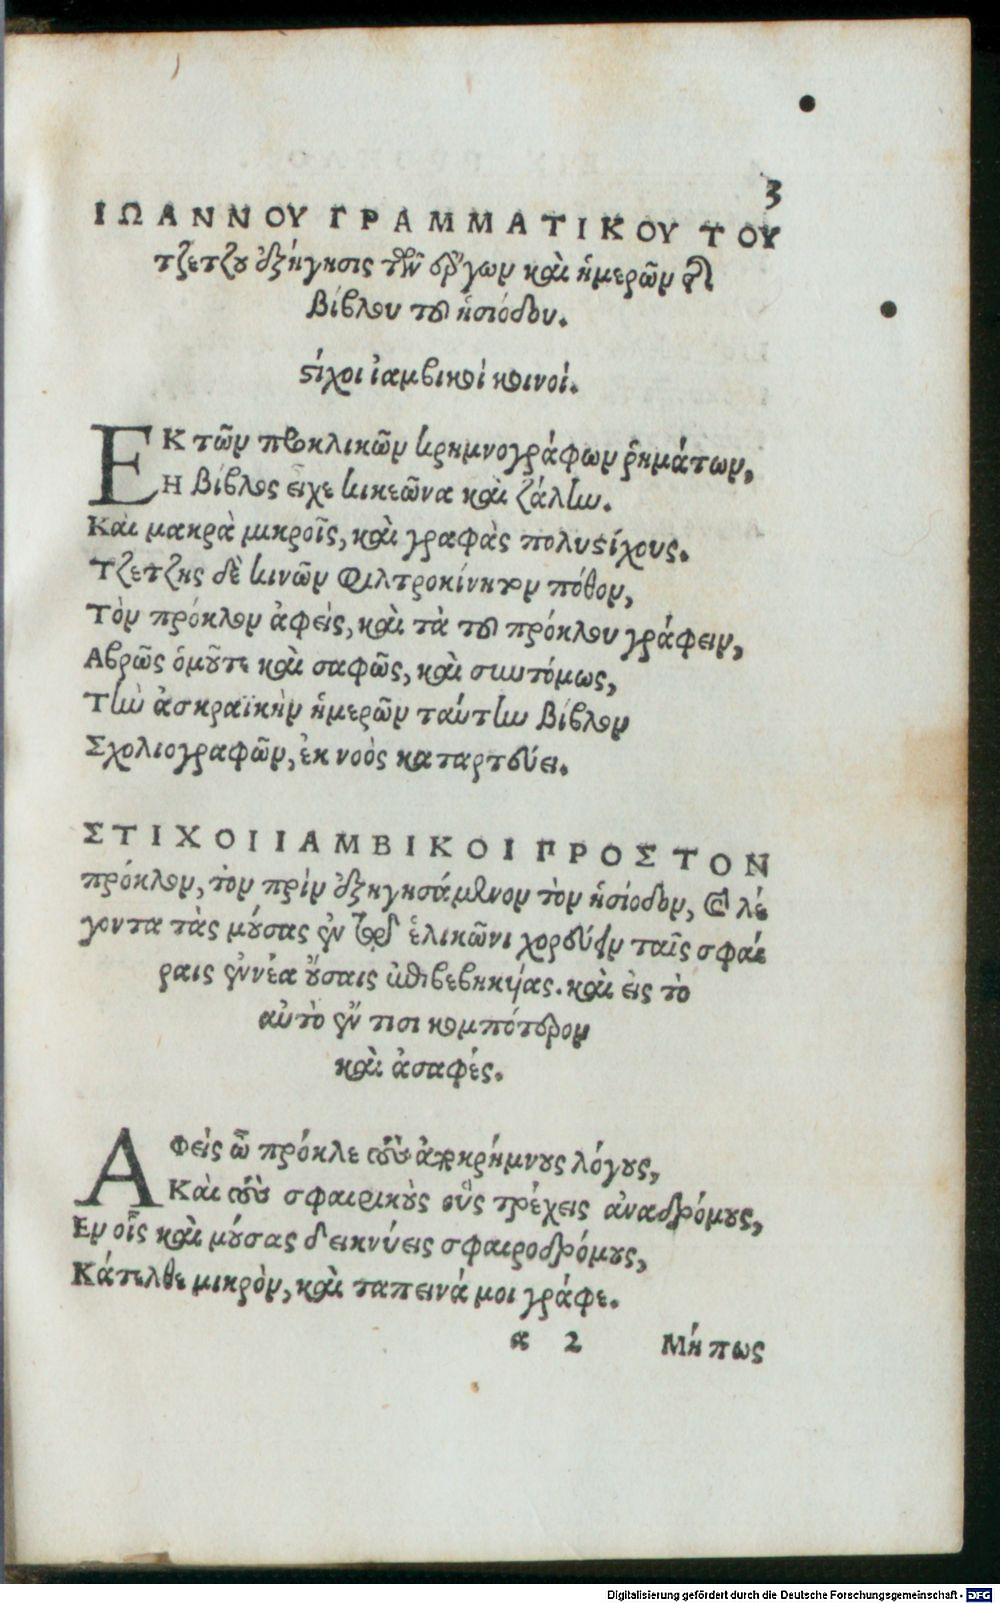 3
ΙΩΑΝΝΟΥ ΓΡΑΜΜΑΤΙΚΟΥ ΤΟΥ
τζετζου ἐξήγησις τῶν ἔργων καὶ ἡμερῶν τῆς
βίβλου τοῦ ἡσιόδου.
στίχοι ἰαμβικοί κοινοί.
ΕΚ τῶν προκλικῶν κρημνογράφων ῥημάτων,
Η βίβλος εἶχε κυκεῶνα καὶ ζάλην.
Καὶ μακρὰ μικροῖς, καὶ γραφὰς πολυστίχους.
Τζετζης δὲ κινῶν φιλτροκίνητον πόθον,
Τὸν πρόκλον ἀφεὶς, καὶ τὰ τοῦ πρόκλου γράφειν,
Αβρῶς ὁμοῦτε καὶ σαφῶς, καὶ συντόμως,
Τὴν ἀσκραϊκὴν ἡμερῶν ταύτην βίβλον
Σχολιογραφῶν, ἐκ νοὸς καταρτύει.
ΣΤΙΧΟΙ ΙΑΜΒΙΚΟΙ ΠΡΟΣ ΤΟΝ
πρόκλον, τὸν πρὶν ἐξηγησάμενον τὸν ἡσίοδον, καὶ λέ
γοντα τὰς μούσας ἐν τῷ ἑλικῶνι χορεύειν ταῖς σφαί
ραις ἐννέα οὔσαις ἐπιβεβηκυίας. καὶ εἰς τὸ
αὐτὸ ἔν τισι κομπότερον
καὶ ἀσαφές.
ΑΦεὶς ὦ πρόκλε τοὺς ἀποκρήμνους λόγους,
Καὶ τοὺς σφαιρικοὺς οὓς τρέχεις ἀναδρόμους,
Εν οἷς καὶ μούσας δεικνύεις σφαιροδρόμους,
Κάτελθε μικρὸν, καὶ ταπεινά μοι γράφε.
α 2 Μή πως
Digitalisierung gefördert durch die Deutsche Forschungsgemeinschaft - DFG